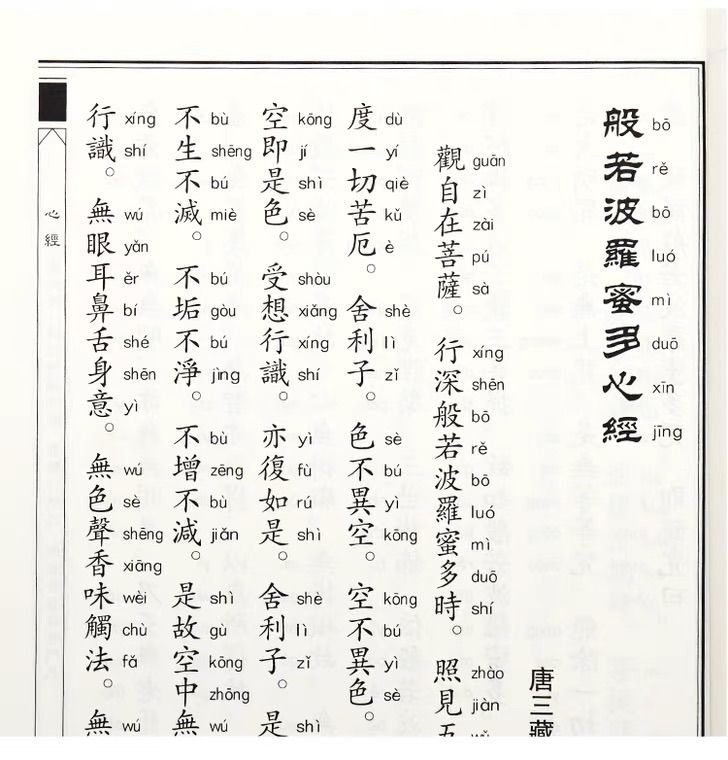 般若波羅蜜多心經
bō rě bō luó mì duō xīn jīng
唐三藏
觀自在菩薩。行深般若波羅蜜多時。照見五
guān zì zài pú sà xíng shēn bō rě bō luó mì duō shí zhào jiàn wǔ
度一切苦厄。舍利子。色不異空。空不異色。
dù yí qiè kǔ è shè lì zǐ sè bú yì kōng kōng bú yì sè
空即是色。受想行識。亦復如是。舍利子。是
kōng jí shì sè shòu xiǎng xíng shí yì fù rú shì shè lì zǐ shì
不生不滅。不垢不淨。不增不減。是故空中無
bù shēng bú miè bú gòu bú jìng bù zēng bù jiǎn shì gù kōng zhōng wú
行識。無眼耳鼻舌身意。無色聲香味觸法。無
xíng shí wú yǎn ěr bí shé shēn yì wú sè shēng xiāng wèi chù fǎ wú
心經